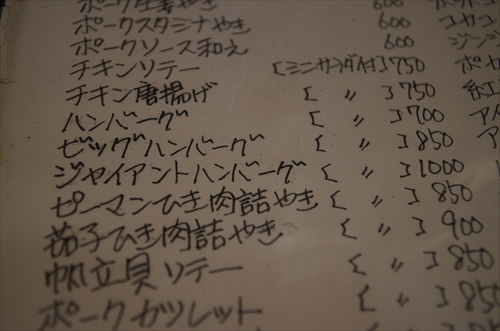 ポーク生姜やき 600
ポークスタミナやき 600 コカコ
ポークソース和え 600 ジンジ
チキンソテー [ミニサラダ付]750
チキン唐揚げ [ 〃 ]750
ハンバーグ [ 〃 ]700
ビッグハンバーグ [ 〃 ]850
ジャイアントハンバーグ [ 〃 ]1000
ピーマンひき肉詰やき [ 〃 ]850
茄子ひき肉詰やき [ 〃 ]900
帆立貝ソテー [ 〃 ]850
ポークカツレット [ 〃 ]850